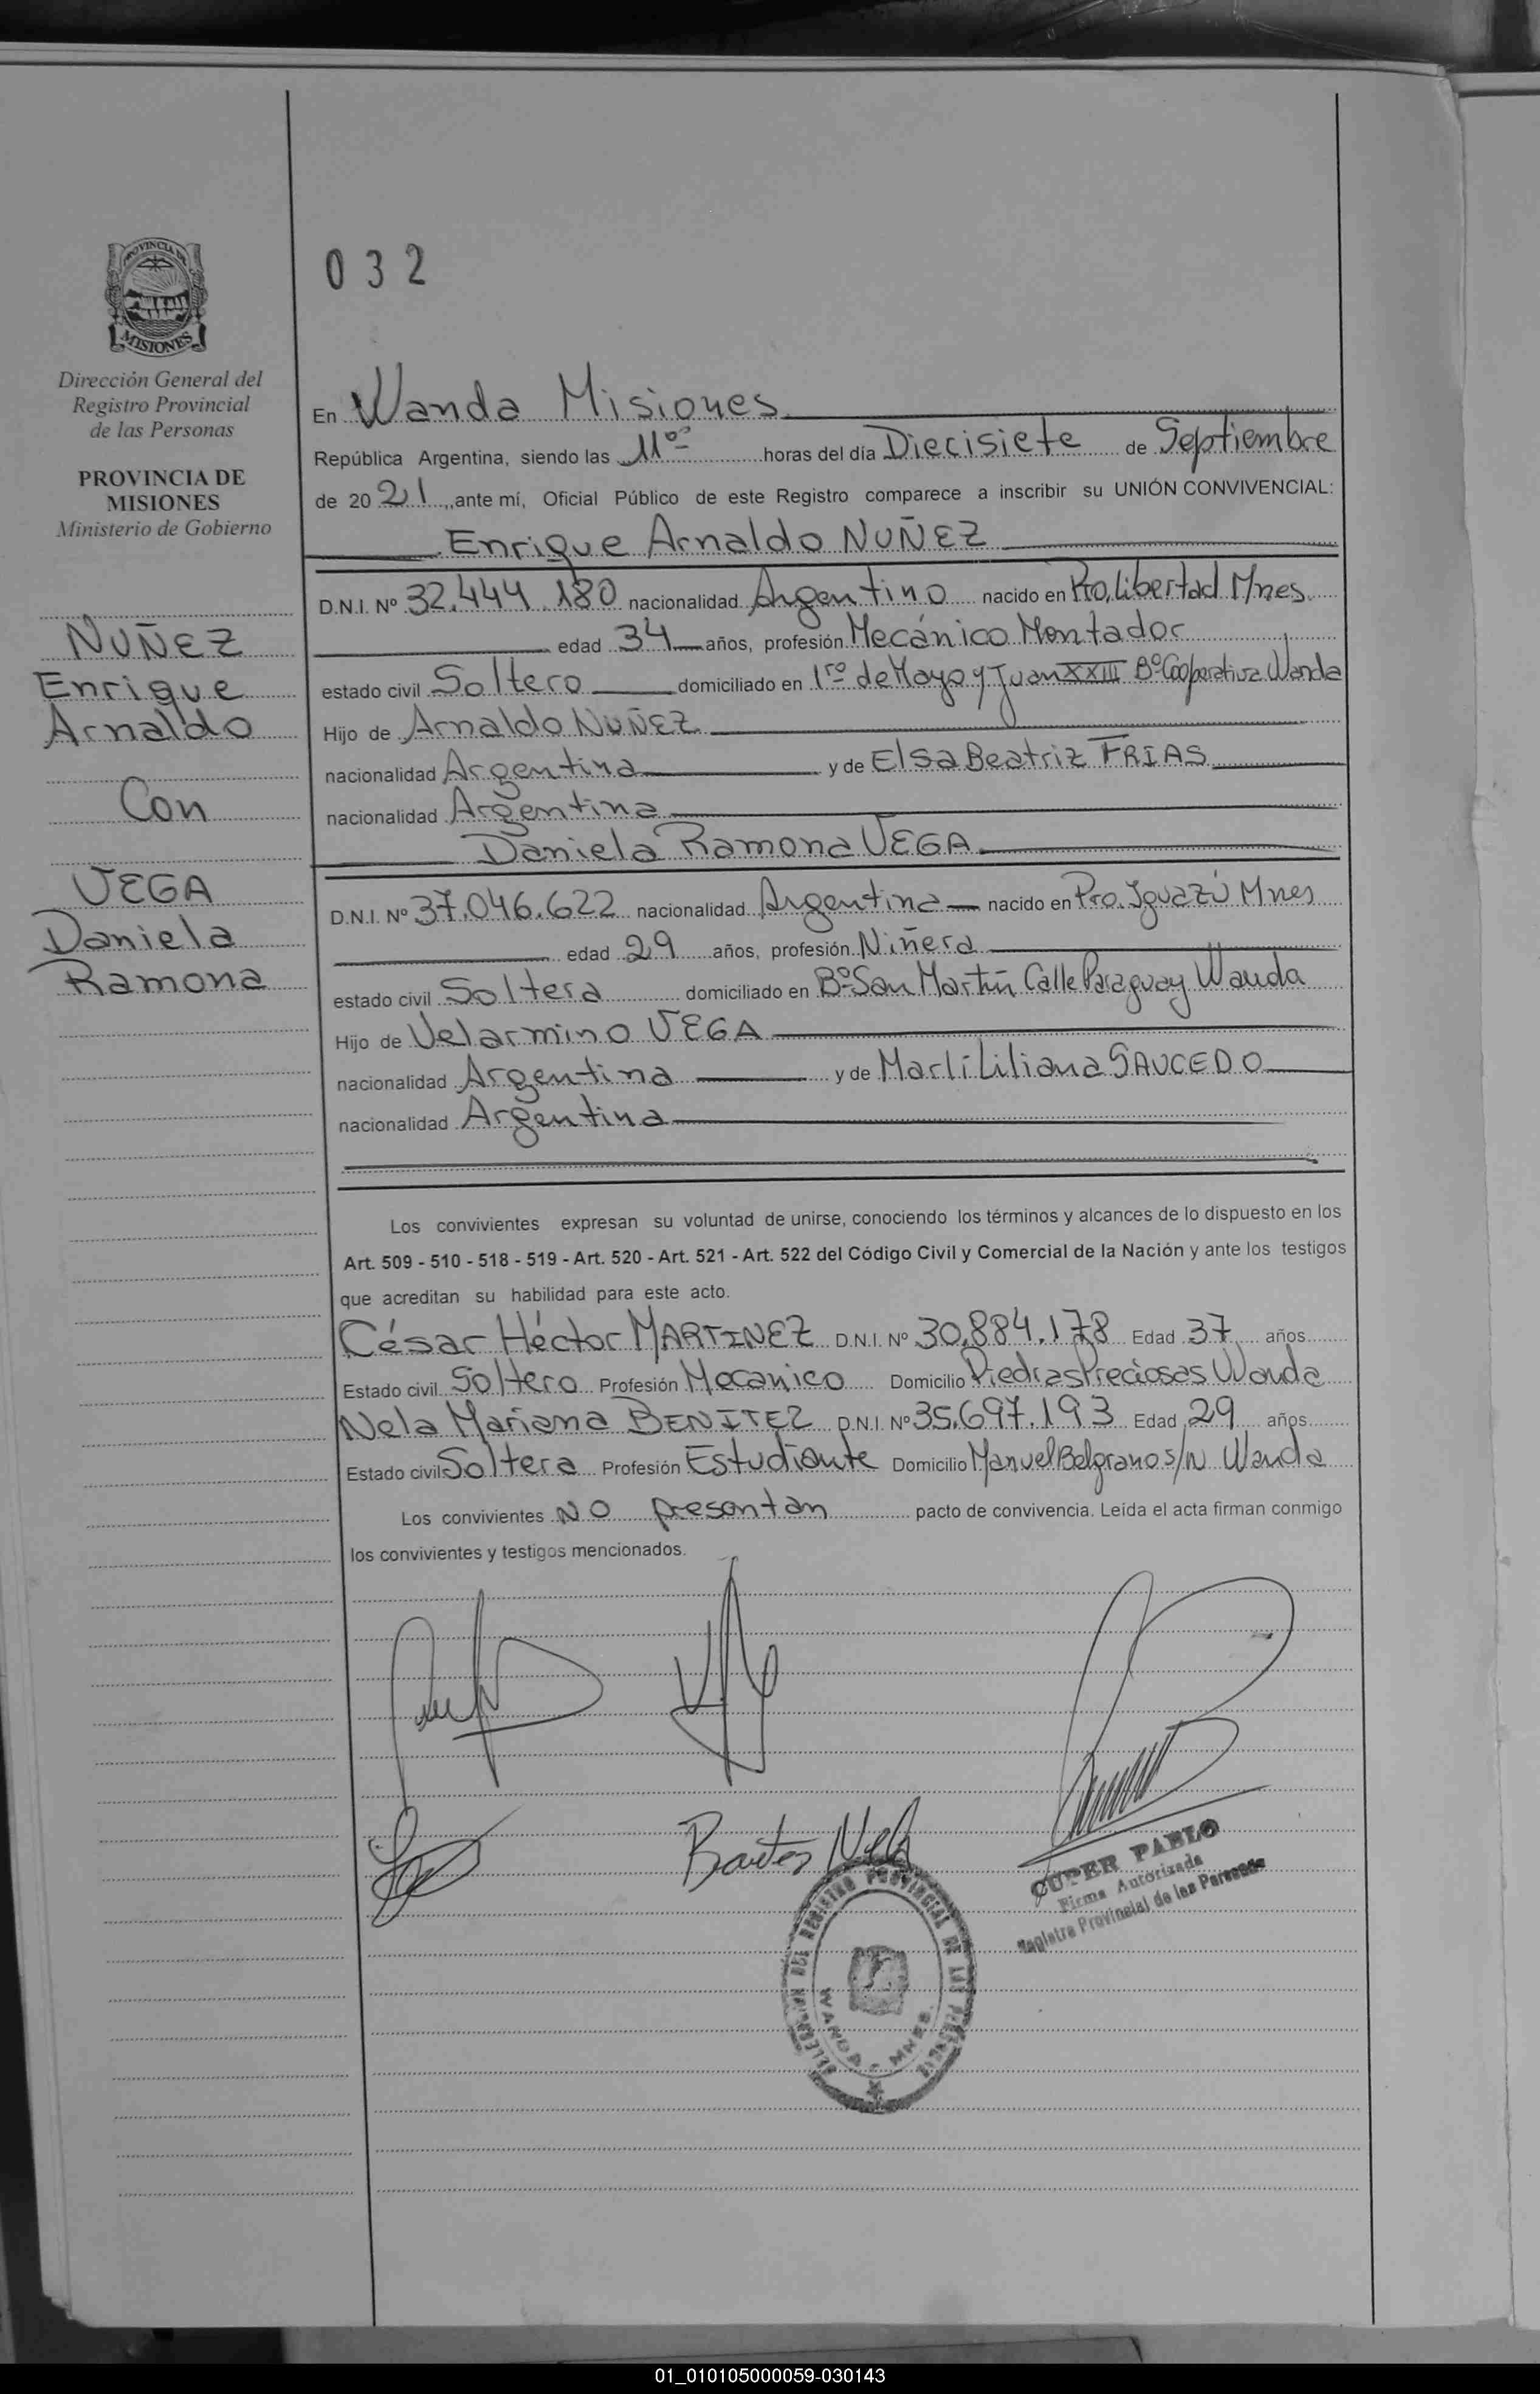 PROVINCIA DE
MISIONES
Dirección General del
Registro Provincial
de las Personas
PROVINCIA DE
MISIONES
Ministerio de Gobierno
NUÑEZ
Enrique
Arnaldo
Con
VEGA
Daniela
Ramona
032
En Wanda Misiones
República Argentina, siendo las 11:00 horas del día Diecisiete de Septiembre
de 2021, ante mí, Oficial Público de este Registro comparece a inscribir su UNIÓN CONVIVENCIAL:
Enrique Arnaldo NUÑEZ
D.N.I. Nº 32.444.180 nacionalidad Argentino nacido en Pto. Libertad Mnes.
edad 34 años, profesión Mecánico Montador
estado civil Soltero domiciliado en 1ro de Mayo y Juan XXIII Bº Cooperativa Wanda
Hijo de Arnaldo NUÑEZ
nacionalidad Argentina y de Elsa Beatriz FRIAS
nacionalidad Argentina
Daniela Ramona VEGA
D.N.I. Nº 37.046.622 nacionalidad Argentina nacido en Pto. Iguazú Mnes
edad 29 años, profesión Niñera
estado civil Soltera domiciliado en Bº San Martín Calle Paraguay Wanda
Hijo de Velarmino VEGA
nacionalidad Argentina y de Marlí Liliana SAUCEDO
nacionalidad Argentina
Los convivientes expresan su voluntad de unirse, conociendo los términos y alcances de lo dispuesto en los
Art. 509 - 510 - 518 - 519 - Art. 520 - Art. 521 - Art. 522 del Código Civil y Comercial de la Nación y ante los testigos
que acreditan su habilidad para este acto.
César Héctor MARTINEZ D.N.I. Nº 30.884.178 Edad 37 años
Estado civil Soltero Profesión Mecanico Domicilio Piedras Preciosas Wanda
Nela Mariana BENITEZ D.N.I. Nº 35.697.193 Edad 29 años
Estado civil Soltera Profesión Estudiante Domicilio Manuel Belgrano s/n Wanda
Los convivientes NO presentan pacto de convivencia. Leída el acta firman conmigo
los convivientes y testigos mencionados.
Nela
CUPER PABLO
Firma Autorizada
Registro Provincial de las Personas
DELEGACION DEL REGISTRO PROVINCIAL DE LAS PERSONAS
WANDA - MNES.
01_010105000059-030143